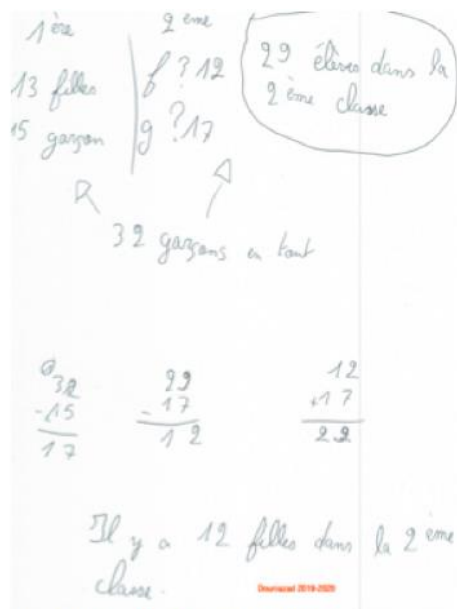 1ère 2ème
13 filles f ? 12
15 garçon g ? 17
29 élèves dans la
2ème classe
32 garçons en tout
32
-15
17
29
-17
12
12
+17
22
Il y a 12 filles dans la 2ème
classe.
Dournazad 2019-2020